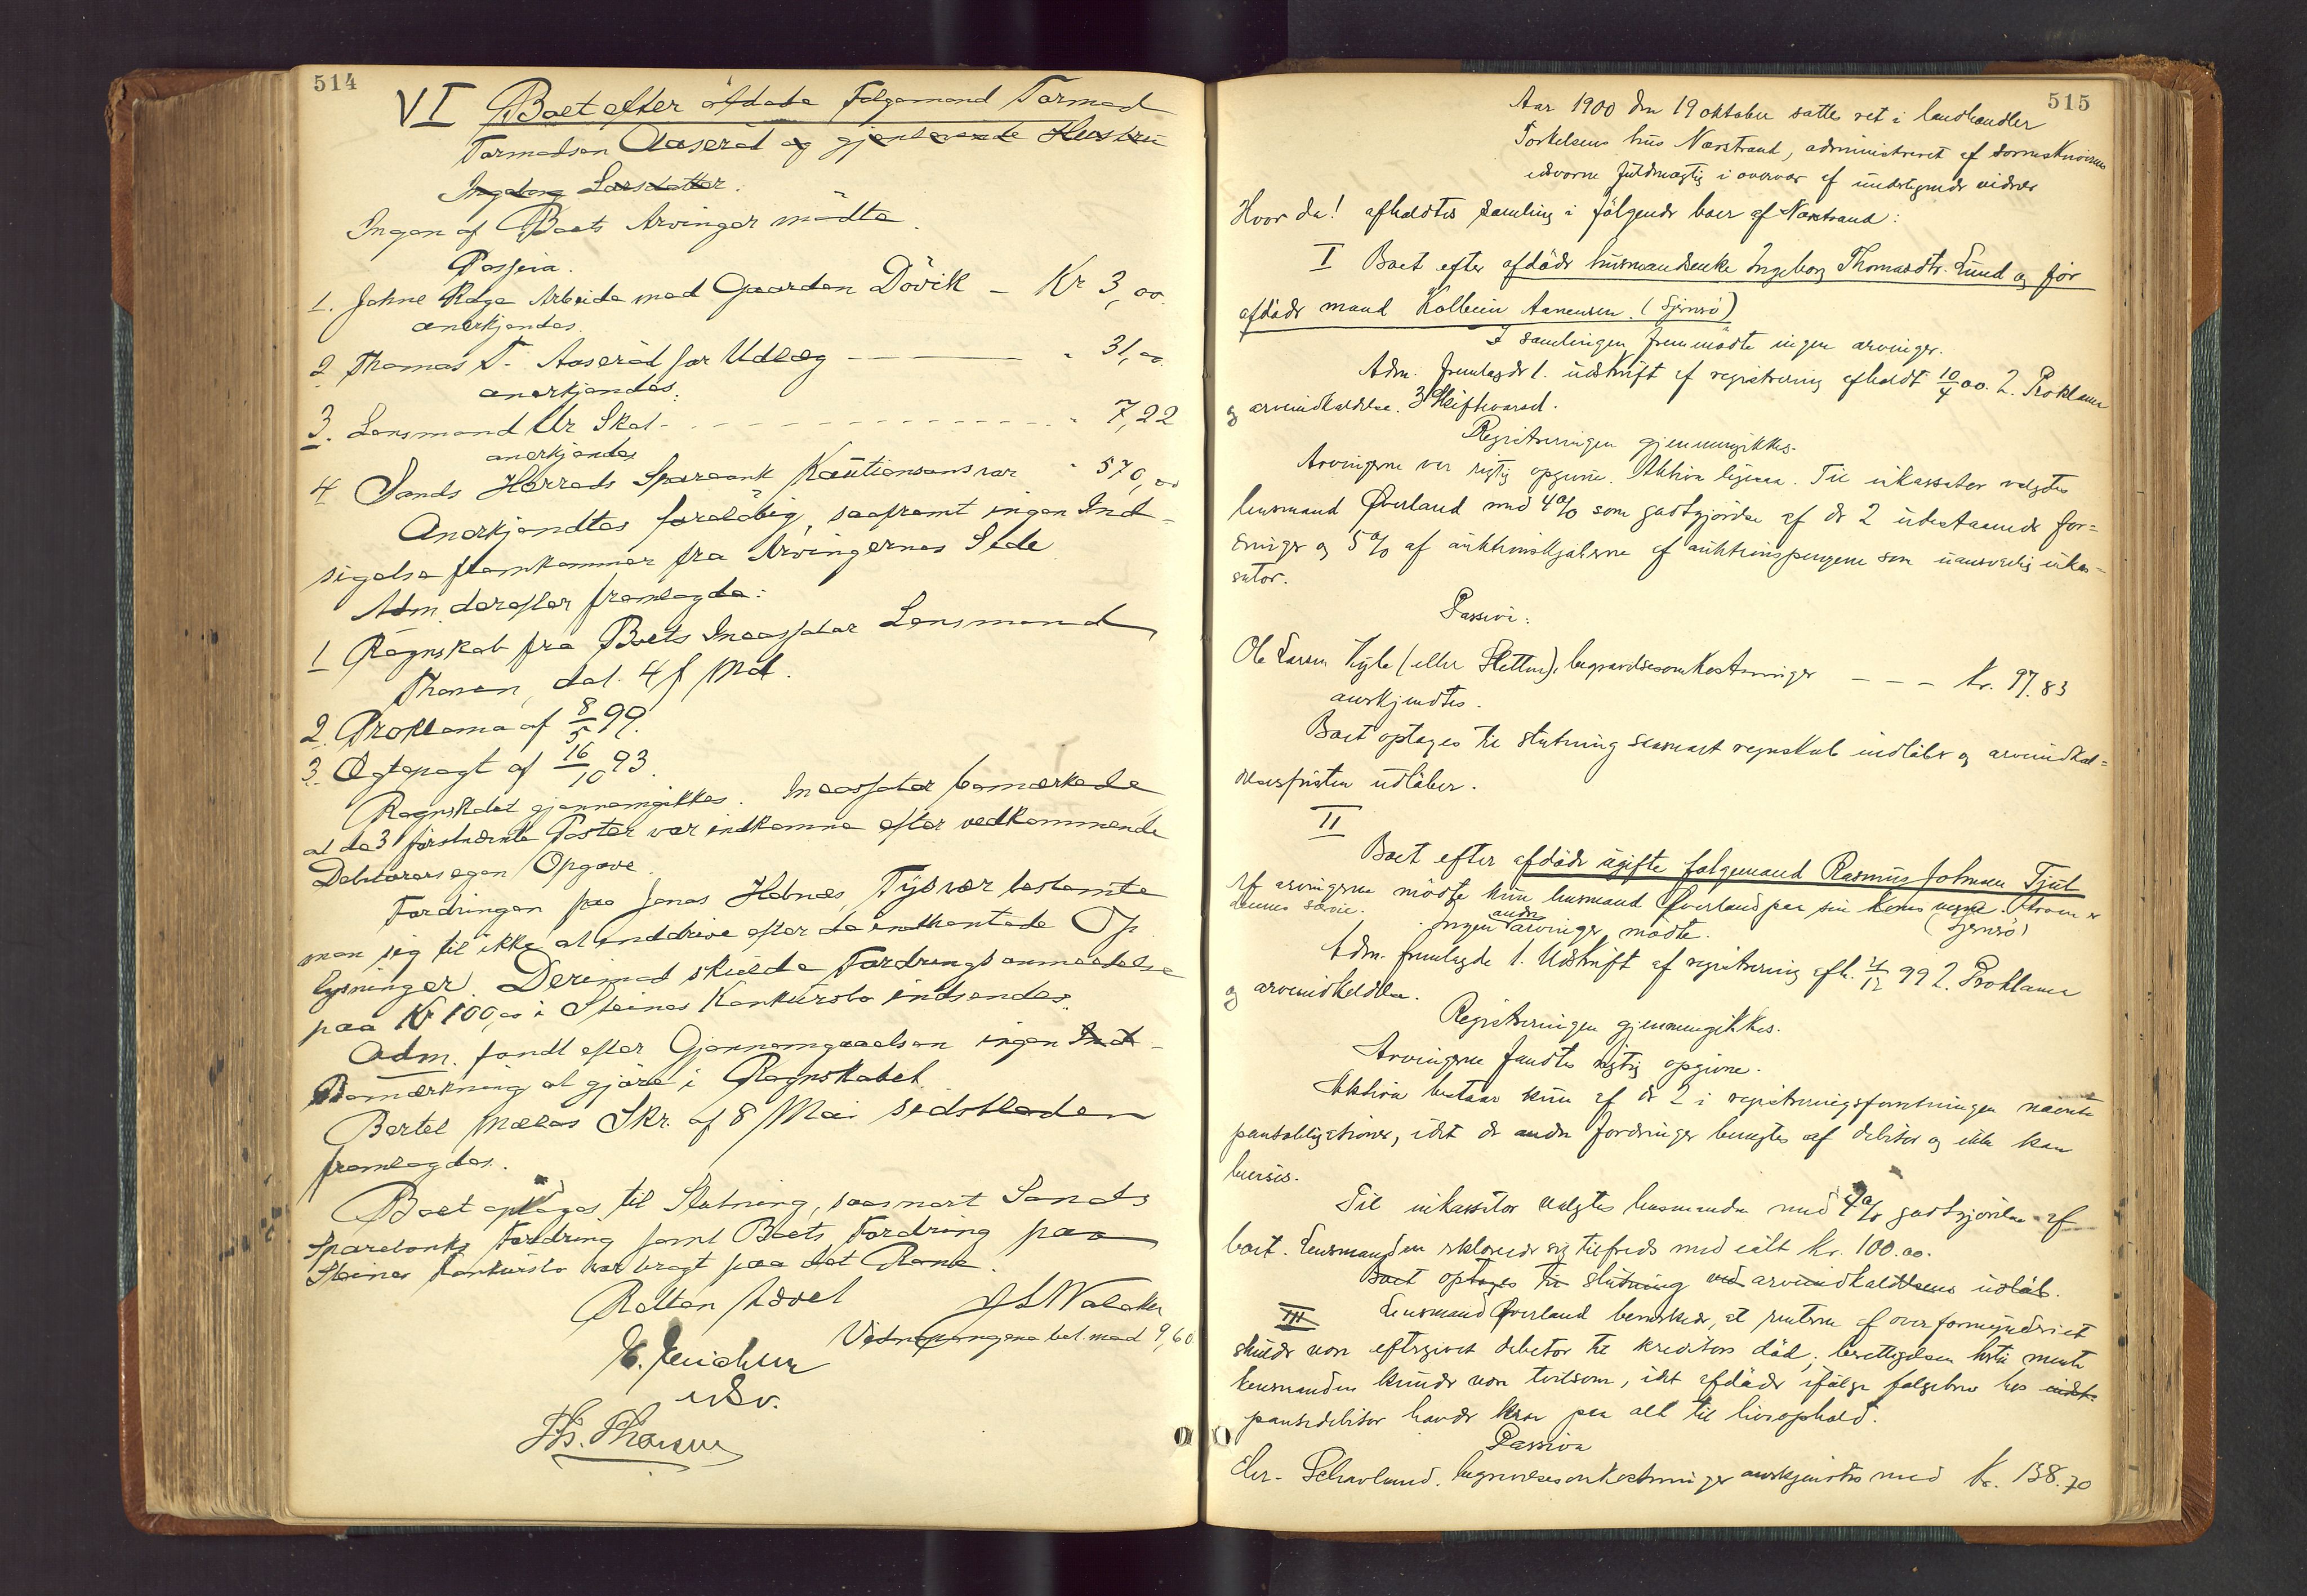 514
VI Boet efter afdøde Folgemand Tormod
Tormodsen Aaserød og gjenlevende Hustru
Ingeborg Larsdatter.
Ingen af Boets Arvinger mødte.
Passiva.
1. Johne Arbeide med Gaarden Døvik – Kr 3,00.
anerkjendes.
2 Thomas T. Aaserød for Udlæg — " 31,00.
anerkjendes.
3. Lensmand Ur Skat - - - " 7,22
anerkjendes
4 Sands Herreds Sparebank Kautionsansvar " 570,00
Anerkjendtes foreløbig, saafremt ingen Ind-
sigelse fremkommer fra Arvingernes Side
Adm. derefter fremlagde:
1 Regnskab fra Boets Incassator Lensmand
Thorsen, dat. 4 f Md.
2. Proklama af 8/5 99.
3. Ægtepagt af 16/10 93.
Regnskabet gjennemgikkes. Incassator bemærkede
at de 3 førstnævnte Poster var indkomne efter vedkommende
Debitorers egen Opgave.
Fordringen paa Jonas Hetnæs, Tysvær bestemte
man sig til ikke at inddrive efter de indhentede Op
lysninger. Derimod skulde Fordringsanmeldelse
paa Kr 100,00 i Steines Konkursbo indsendes.
Adm. fandt efter Gjennemgaaelsen ingen Ind-
Bemærkning at gjøre i Regnskabet
Bertel Mælas Skr. af 8 Mai sidstleden
fremlagdes.
Boet optages til Slutning, saasnart Sands
Sparebanks Fordring samt Boets Fordring paa
Steines Konkursbo var bragt paa det Rene.
Retten hævet
Vidnepengene bet. med 9,60
Ths. Thorsen
515
Aar 1900 den 19 oktober sattes ret i landhandler
Torkelsens hus Nærstrand, administreret af sorenskriverens
edsvorne fuldmægtig i overvær af undertegnede vidner
Hvor da! afholdtes samling i følgende boer af Nærstrand:
I Boet efter afdøde husmandsenke Ingeborg Thomasdtr. Lund og før
afdøde mand Kolbein Aanensen. (Sjernerø)
I samlingen fremmødte ingen arvinger.
Adm. fremlagde 1. udskrift af registrering afholdt 10/4 00. 2. Proklama
og arveindkaldelse. 3 Skiftevarsel.
Registreringen gjennemgikkes.
Arvingerne var rigtig opgivne. Aktiva ligesaa. Til inkassator valgtes
lensmand Øverland med 4% som godtgjørelse af de 2 udestaaende for=
dringer og 5% af auktionskjøberne af auktionspengene som uansvarlig inkas=
sator.
Passiva:
Ole Larsen (eller Slettene), begravelsesomkostninger – – – kr. 97.83
anerkjendtes.
Boet optages til slutning saasnart regnskab indløber og arveindkal=
delsesfristen udløber.
II
Boet efter afdøde ugifte folgemand Rasmus Johnsen Tjul
Af arvingerne mødte kun lensmand Øverland paa sin kones vegne.
(Sjernerø)
Ingen andre arvinger mødte.
Adm. fremlagde 1. Udskrift af registrering afh. 99 2. Proklama
og arveindkaldelse.
Registreringen gjennemgikkes.
Arvingerne fandtes rigtig opgivne.
Aktiva bestaar kun af de 2 i registreringsforretningen nævnte
pantobligationer, idet de andre fordringer benegtes af debitor og ikke kan
bevises.
Til inkassator valgtes lensmanden med 4% godtgjørelse af
boet. Lensmanden erklærede sig tilfreds med ialt kr. 100.00.
Boet optages til slutning ved arveindkaldelsens udløb.
III Lensmand Øverland bemerkede, at renterne af overformynderiet
skulde være eftergivet debitor til kreditors død; berettigelsen hertil mente
lensmanden kunde være tvilsom, idet afdøde ifølge folgebrev hos
pantedebitor havde krav paa alt til livsophold.
Passiva
Chr. Schavland. begravelsesomkostninger anerkjendtes med kr. 138.70